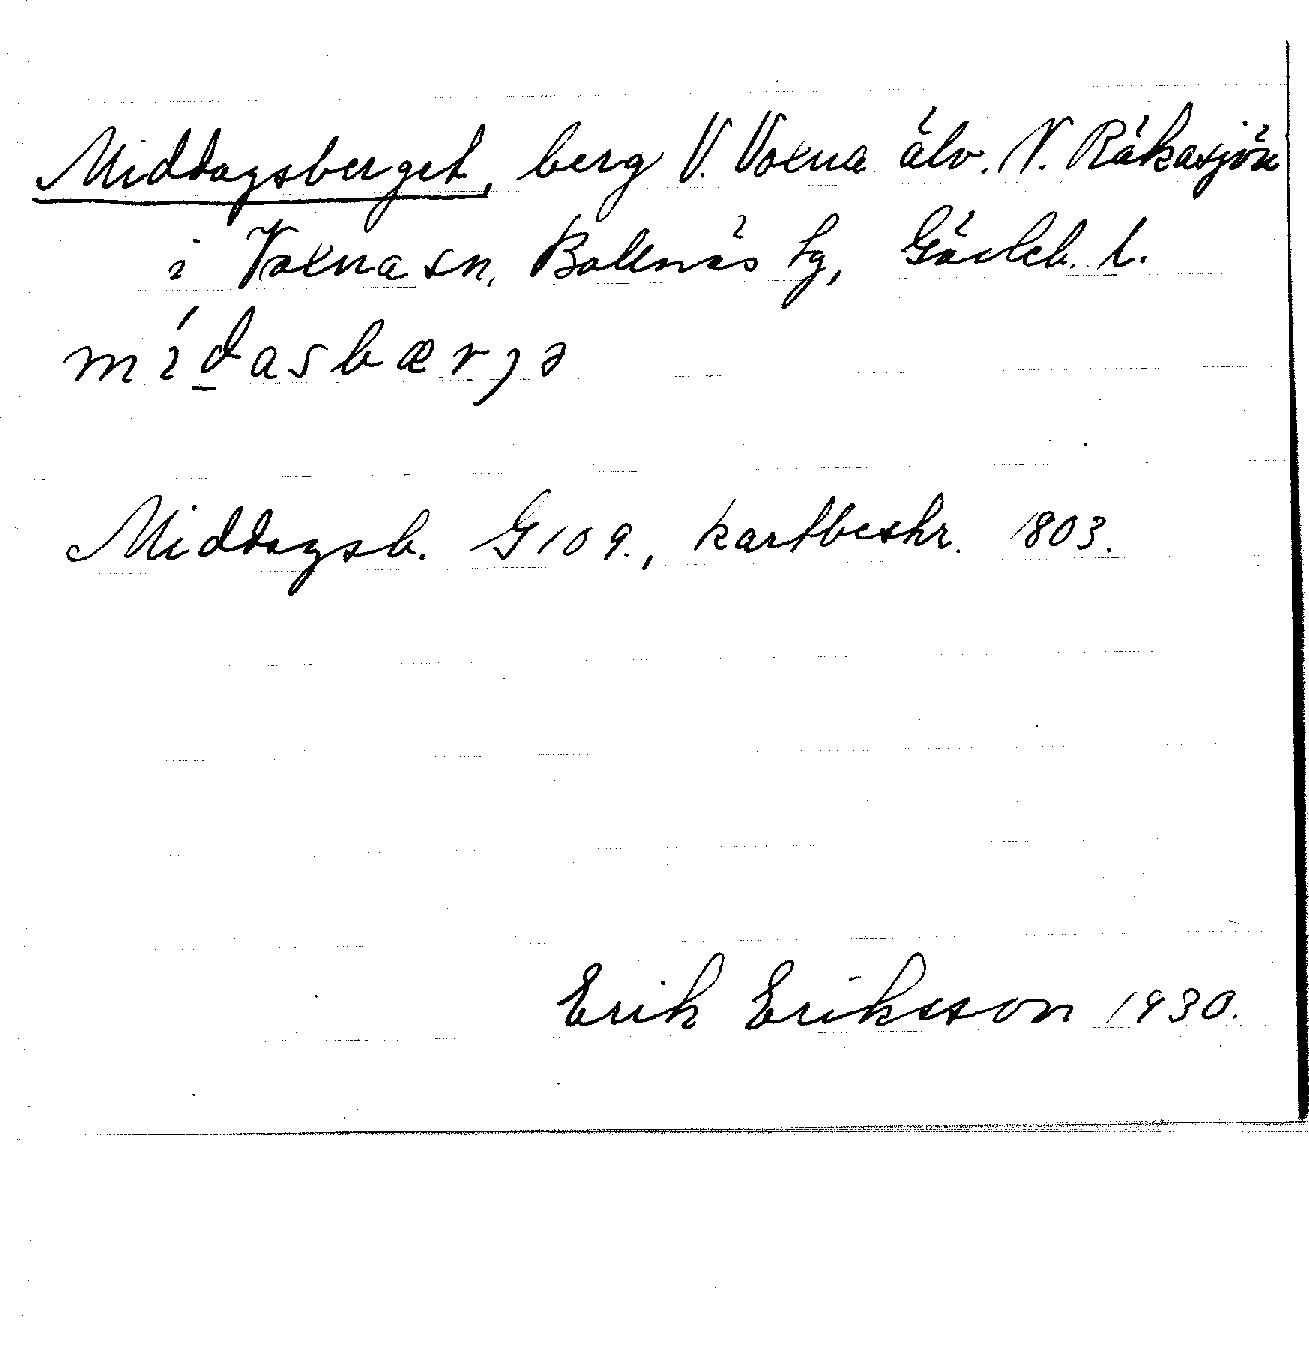 Middagsberget, berg V. Voxna älv. N. Råkasjön
i Voxna sn, Bollnäs tg, Gävleb. l.
mídasbærjə
Middagsb. G 109., kartbeskr. 1803.
Erik Eriksson 1930.